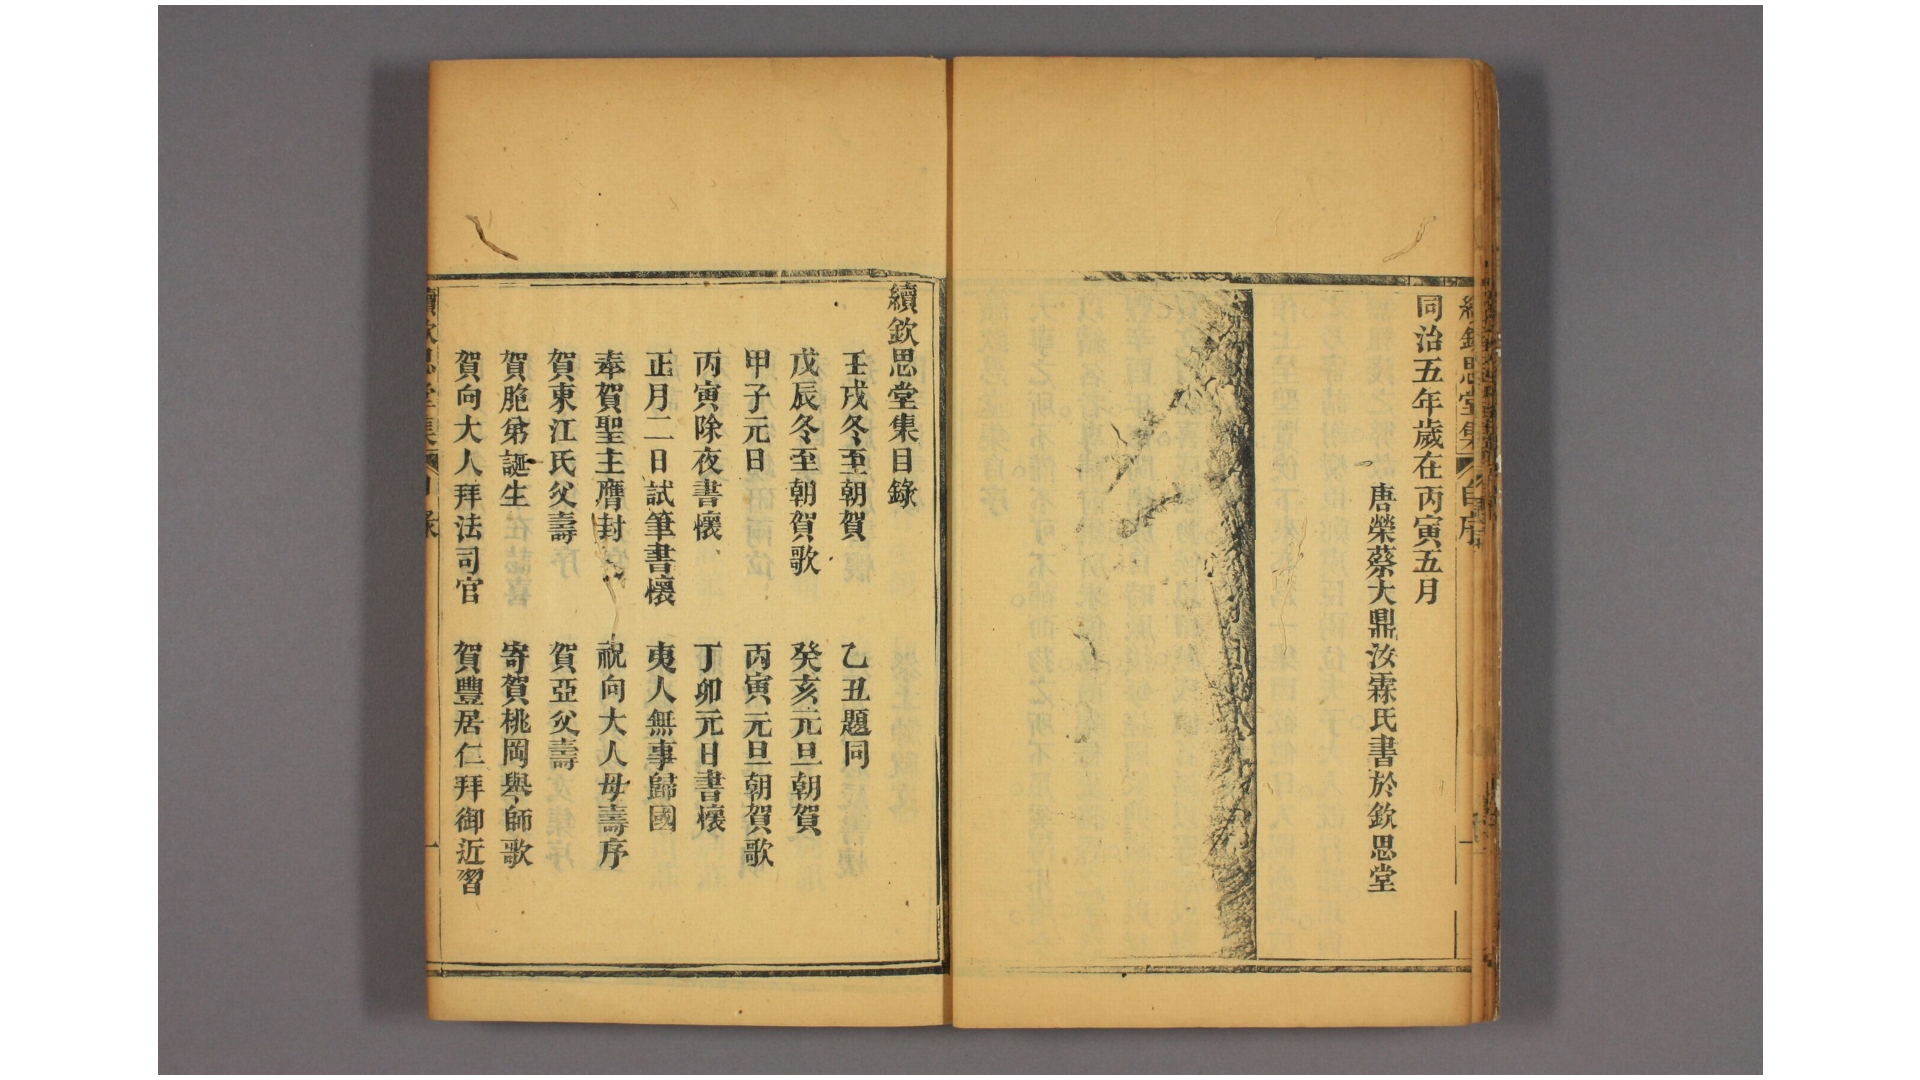 續欽思堂集 自序 一
同治五年歲在丙寅五月
唐榮蔡大鼎汝霖氏書於欽思堂
續欽思堂集目錄
壬戌冬至朝賀 乙丑題同
戊辰冬至朝賀歌 癸亥元旦朝賀
甲子元日 丙寅元旦朝賀歌
丙寅除夜書懷 丁卯元日書懷
正月二日試筆書懷 夷人無事歸國
奉賀聖主膺封 祝向大人母壽序
賀東江氏父壽 賀亞父壽
賀胞弟誕生 寄賀桃岡舉師歌
賀向大人拜法司官 賀豐居仁拜御近習
續欽思堂集 目錄 一